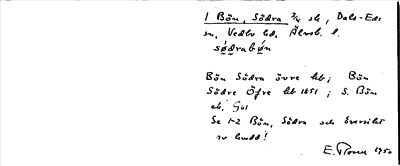 1 Bön, Södra 3/4 sk, Dals-Eds
sn, Vedbo hd, Älvsb. l.
sødrabøn
Bön Södra övre kb; Bön
Södre Öfre kb 1651; S. Bön
ek. G61
Se 1-2 Bön, Södra och översikt
av hundd!
E. 1950